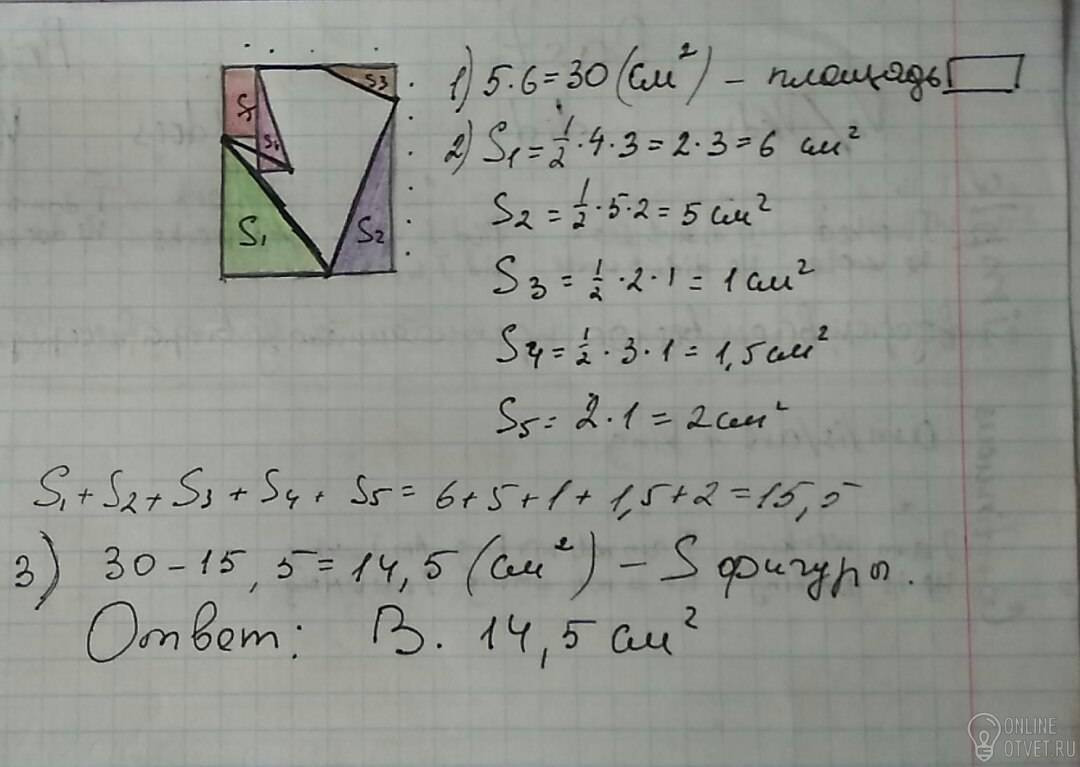 1) 5·6=30 (см²) – площадь
2) S1 = 1/2 · 4 · 3 = 2 · 3 = 6 см²
S2 = 1/2 · 5 · 2 = 5 см²
S3 = 1/2 · 2 · 1 = 1 см²
S4 = 1/2 · 3 · 1 = 1,5 см²
S5 = 2 · 1 = 2 см²
S3
S1
S2
S1 + S2 + S3 + S4 + S5 = 6 + 5 + 1 + 1,5 + 2 = 15,5
3) 30 – 15,5 = 14,5 (см²) – S фигуры.
Ответ: В. 14,5 см²
ONLINE
OTVET.RU